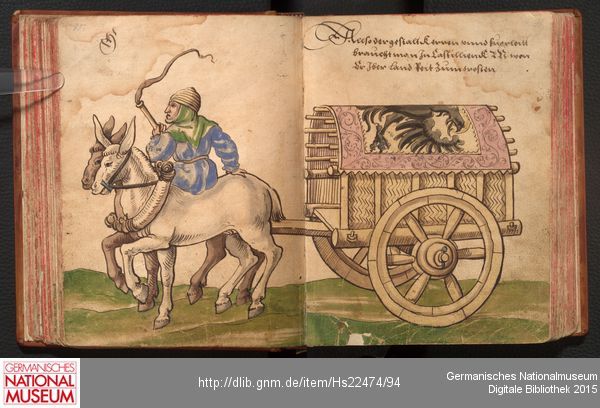 Allso der gestallt Kerren vnnd fuerleitt
braucht man In Castillien K M wen
Er Iber land Reit Zum trosten
GERMANISCHES
NATIONAL
MUSEUM
http://dlib.gnm.de/item/Hs22474/94
Germanisches Nationalmuseum
Digitale Bibliothek 2015